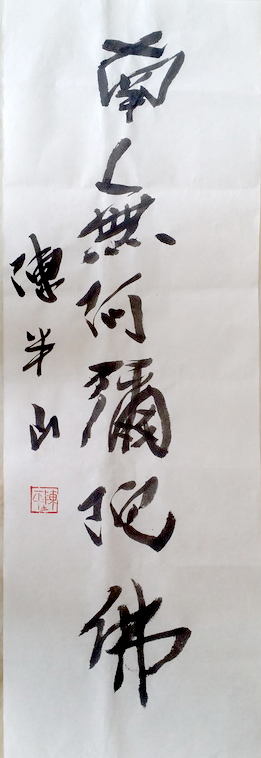 南无阿彌陀佛
陳半山